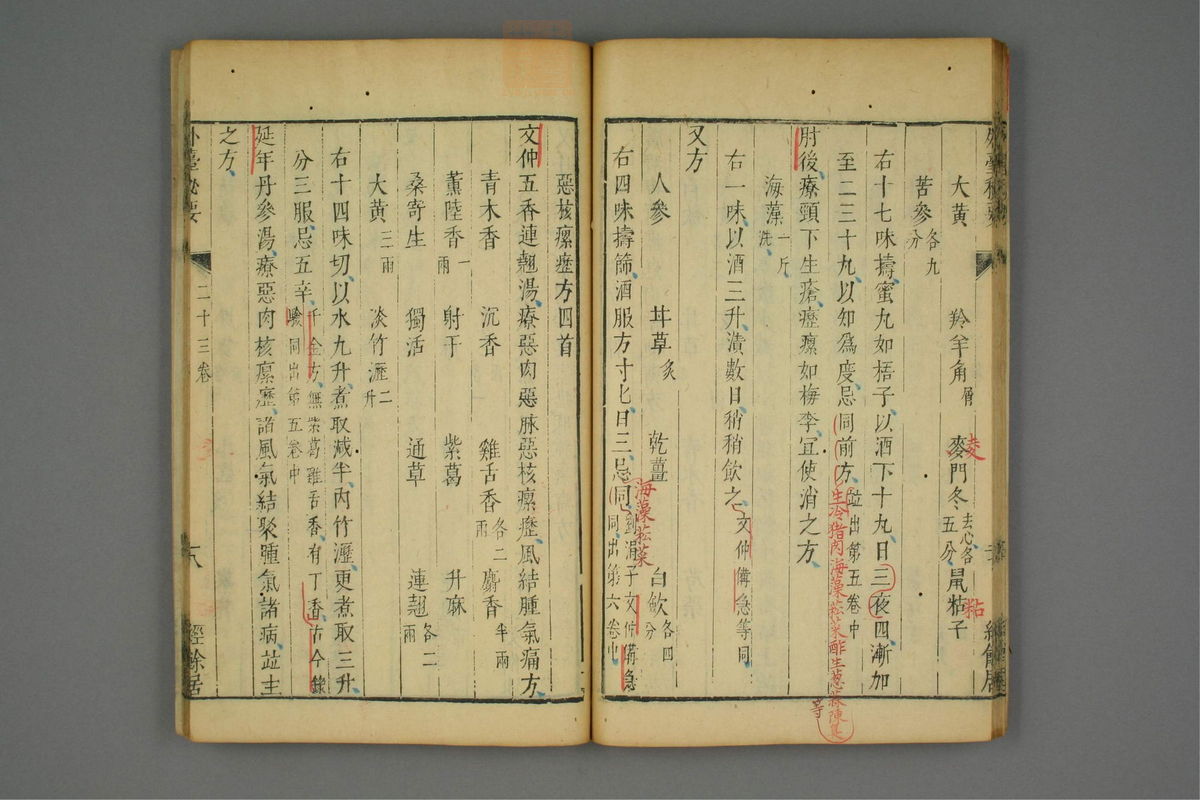 大黃 羚羊角屑 麥門冬去心各五分 鼠粘子
苦參各九分
右十七味擣蜜丸如梧子以酒下十丸日三夜四漸加
至二三十丸以知爲度忌同前方並出第五卷中
生冷猪肉海藻菘菜酢生葱蒜陳臭等
肘後療頸下生瘡瘰癧如梅李宜使消之方
海藻一斤洗
右一味以酒三升漬數日稍稍飲之文仲備急等同
又方
人參 甘草炙 乾薑 白斂各四分
右四味擣篩酒服方寸匕日三忌同劉涓子文仲備急同出第六卷中
海藻菘菜
惡核瘰癧方四首
文仲五香連翹湯療惡肉惡脉惡核瘰癧風結腫氣痛方
青木香 沉香 雞舌香各二兩 麝香半兩
薰陸香一兩 射干 紫葛 升麻
桑寄生 獨活 通草 連翹各二兩
大黃三兩 淡竹瀝二升
右十四味切以水九升煮取減半內竹瀝更煮取三升
分三服忌五辛千金方無紫葛雞舌香有丁香古今錄驗同出第五卷中
延年丹參湯療惡肉核瘰癧諸風氣結聚腫氣諸病並主
之方
外臺秘要 二十三卷 十八 經餘居